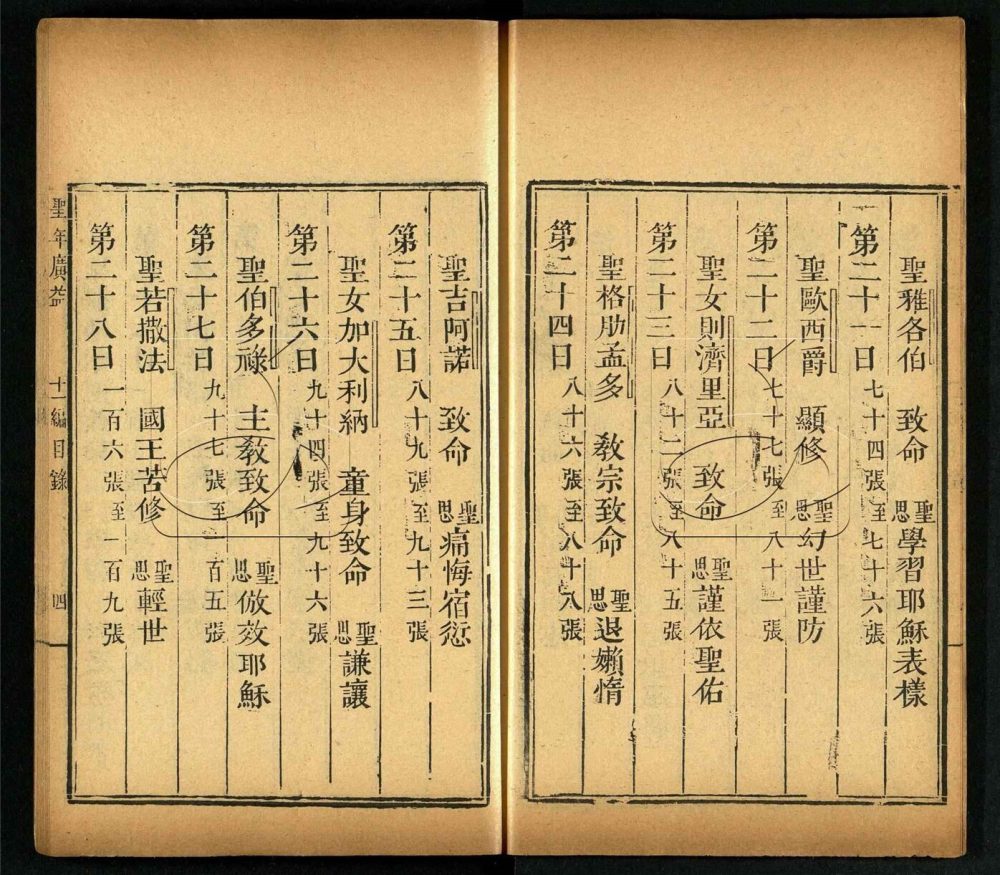 聖雅各伯 致命 聖思學習耶穌表樣
第二十一日 七十四張至七十六張
聖歐西爵 顯修 聖思幻世謹防
第二十二日 七十七張至八十一張
聖女則濟里亞 致命 聖思謹依聖佑
第二十三日 八十二張至八十五張
聖格肋孟多 敎宗致命 聖思退嬾惰
第二十四日 八十六張至八十八張
聖吉阿諾 致命 聖思痛悔宿愆
第二十五日 八十九張至九十三張
聖女加大利納 童身致命 聖思謙讓
第二十六日 九十四張至九十六張
聖伯多祿 主敎致命 聖思倣效耶穌
第二十七日 九十七張至百五張
聖若撒法 國王苦修 聖思輕世
第二十八日 一百六張至一百九張
聖年廣益 十一編目錄 四